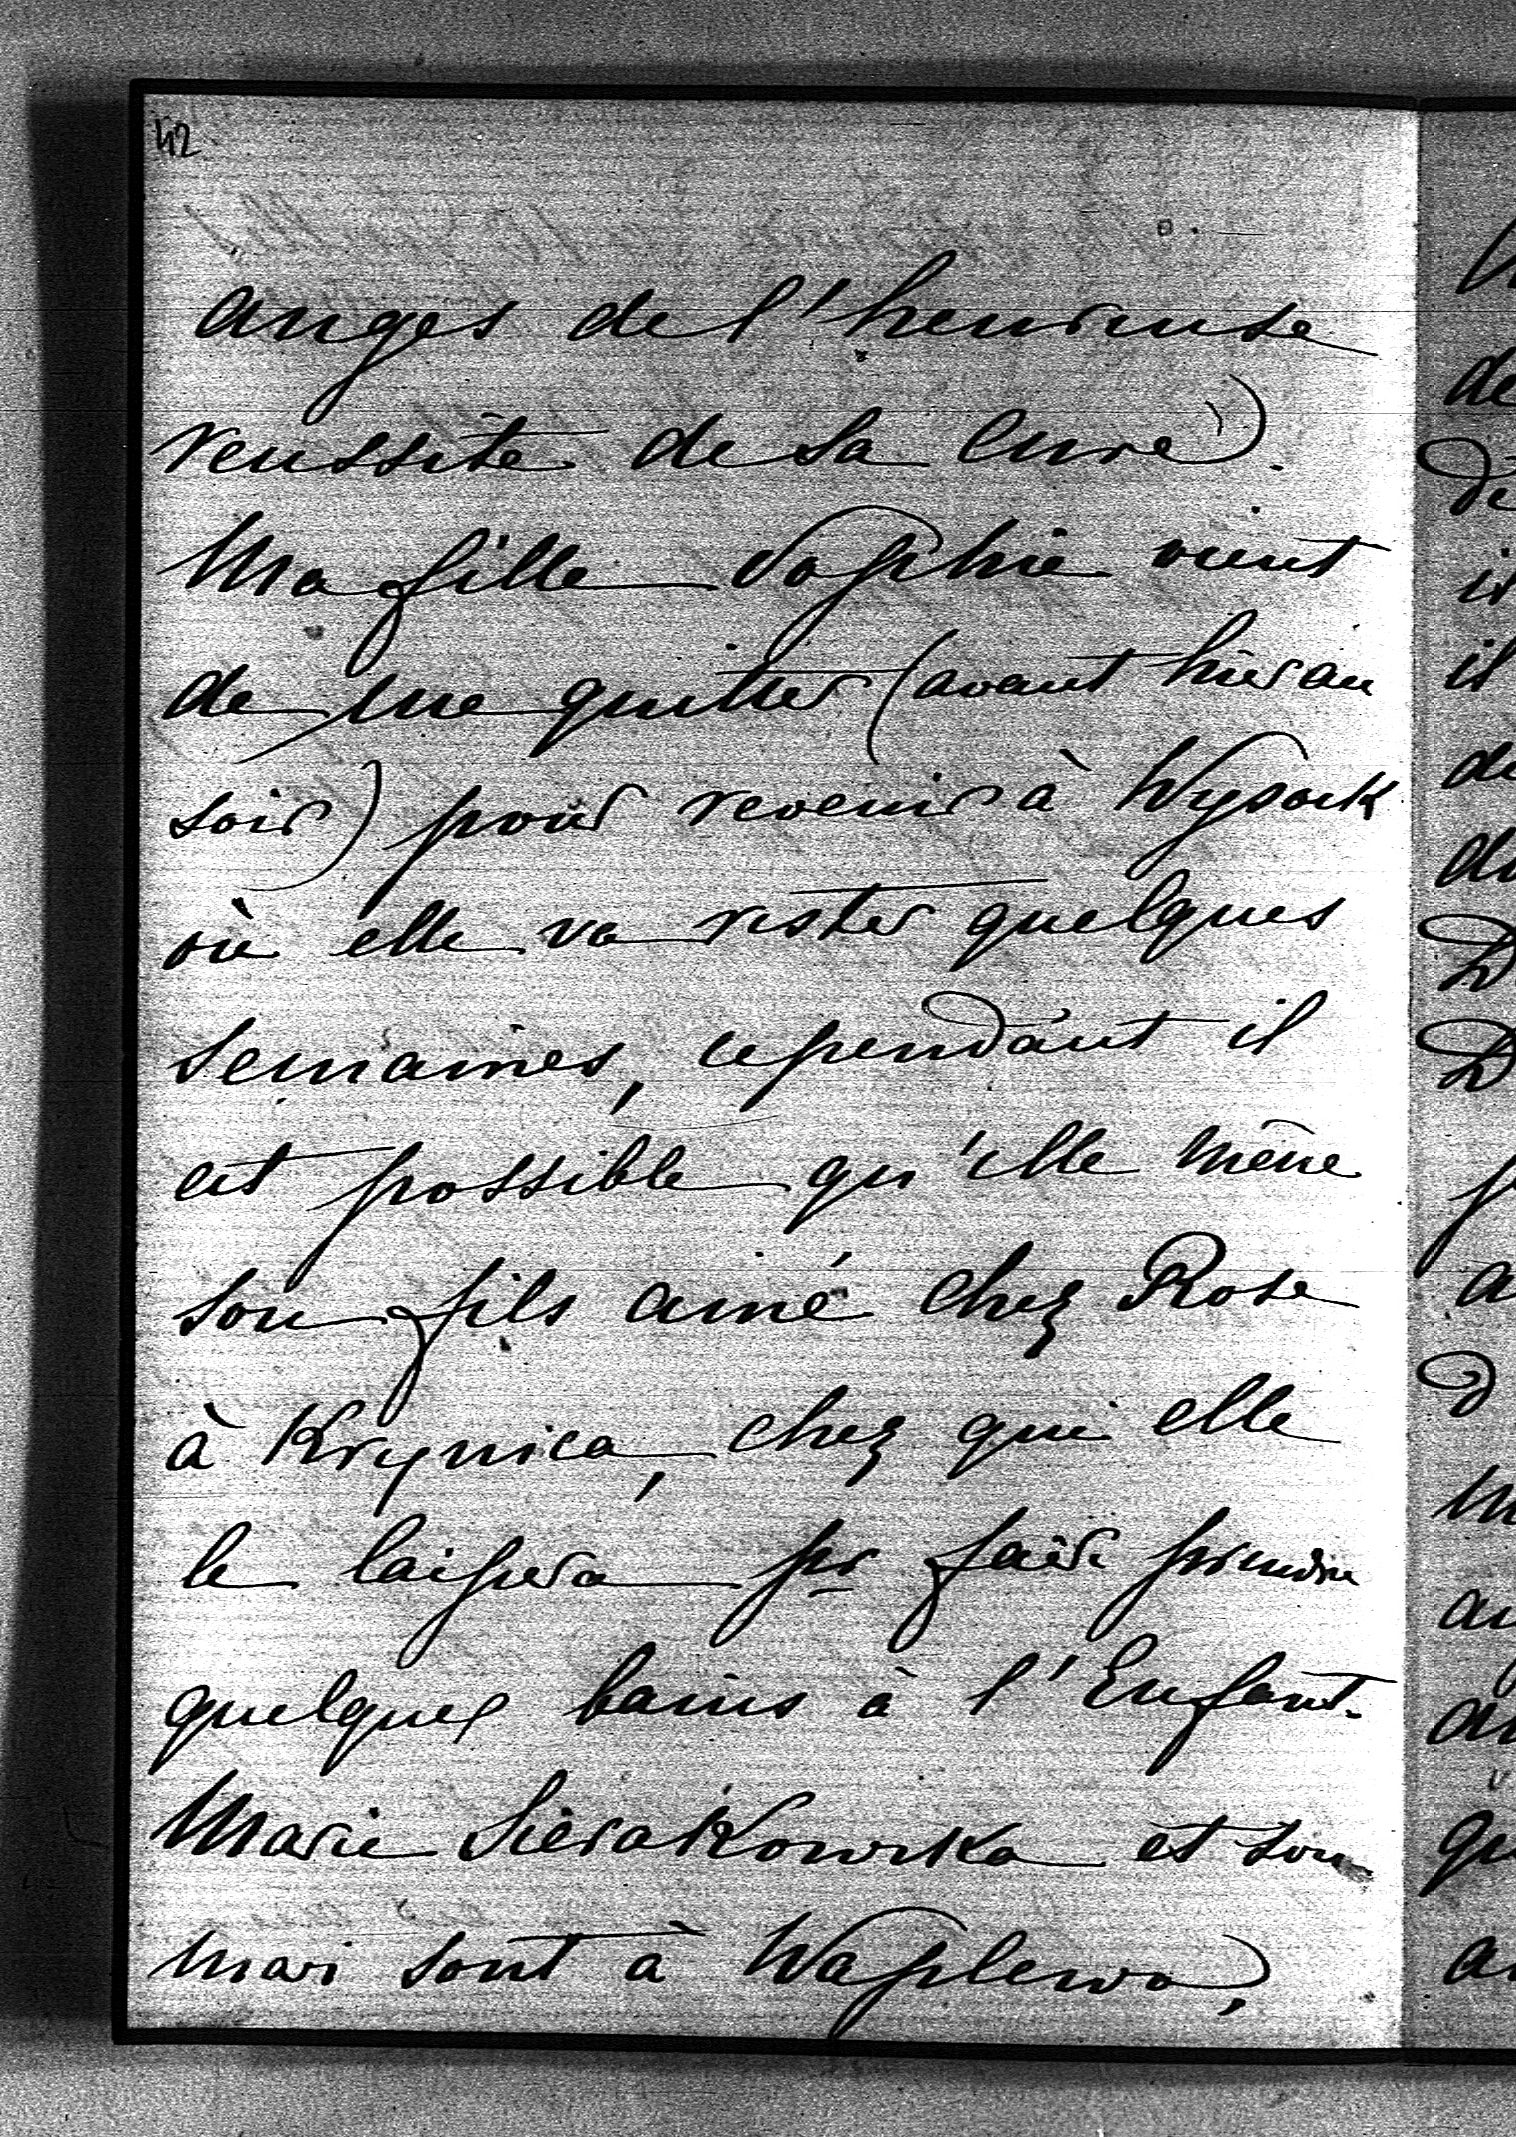 42
anges de l'heureuse
reussite de sa cure).
Ma fille Sophie vient
de me quitter (avant hier au
soir) pour revenir à Wysock
où elle va rester quelques
semaines, cependant il
est possible qu'elle mène
son fils ainé chez Rose
à Krynica, chez qui elle
le laissera pr faire prendre
quelques bains à l'Enfant.
Marie Sierakowska et son
mari sont à Waplewo,